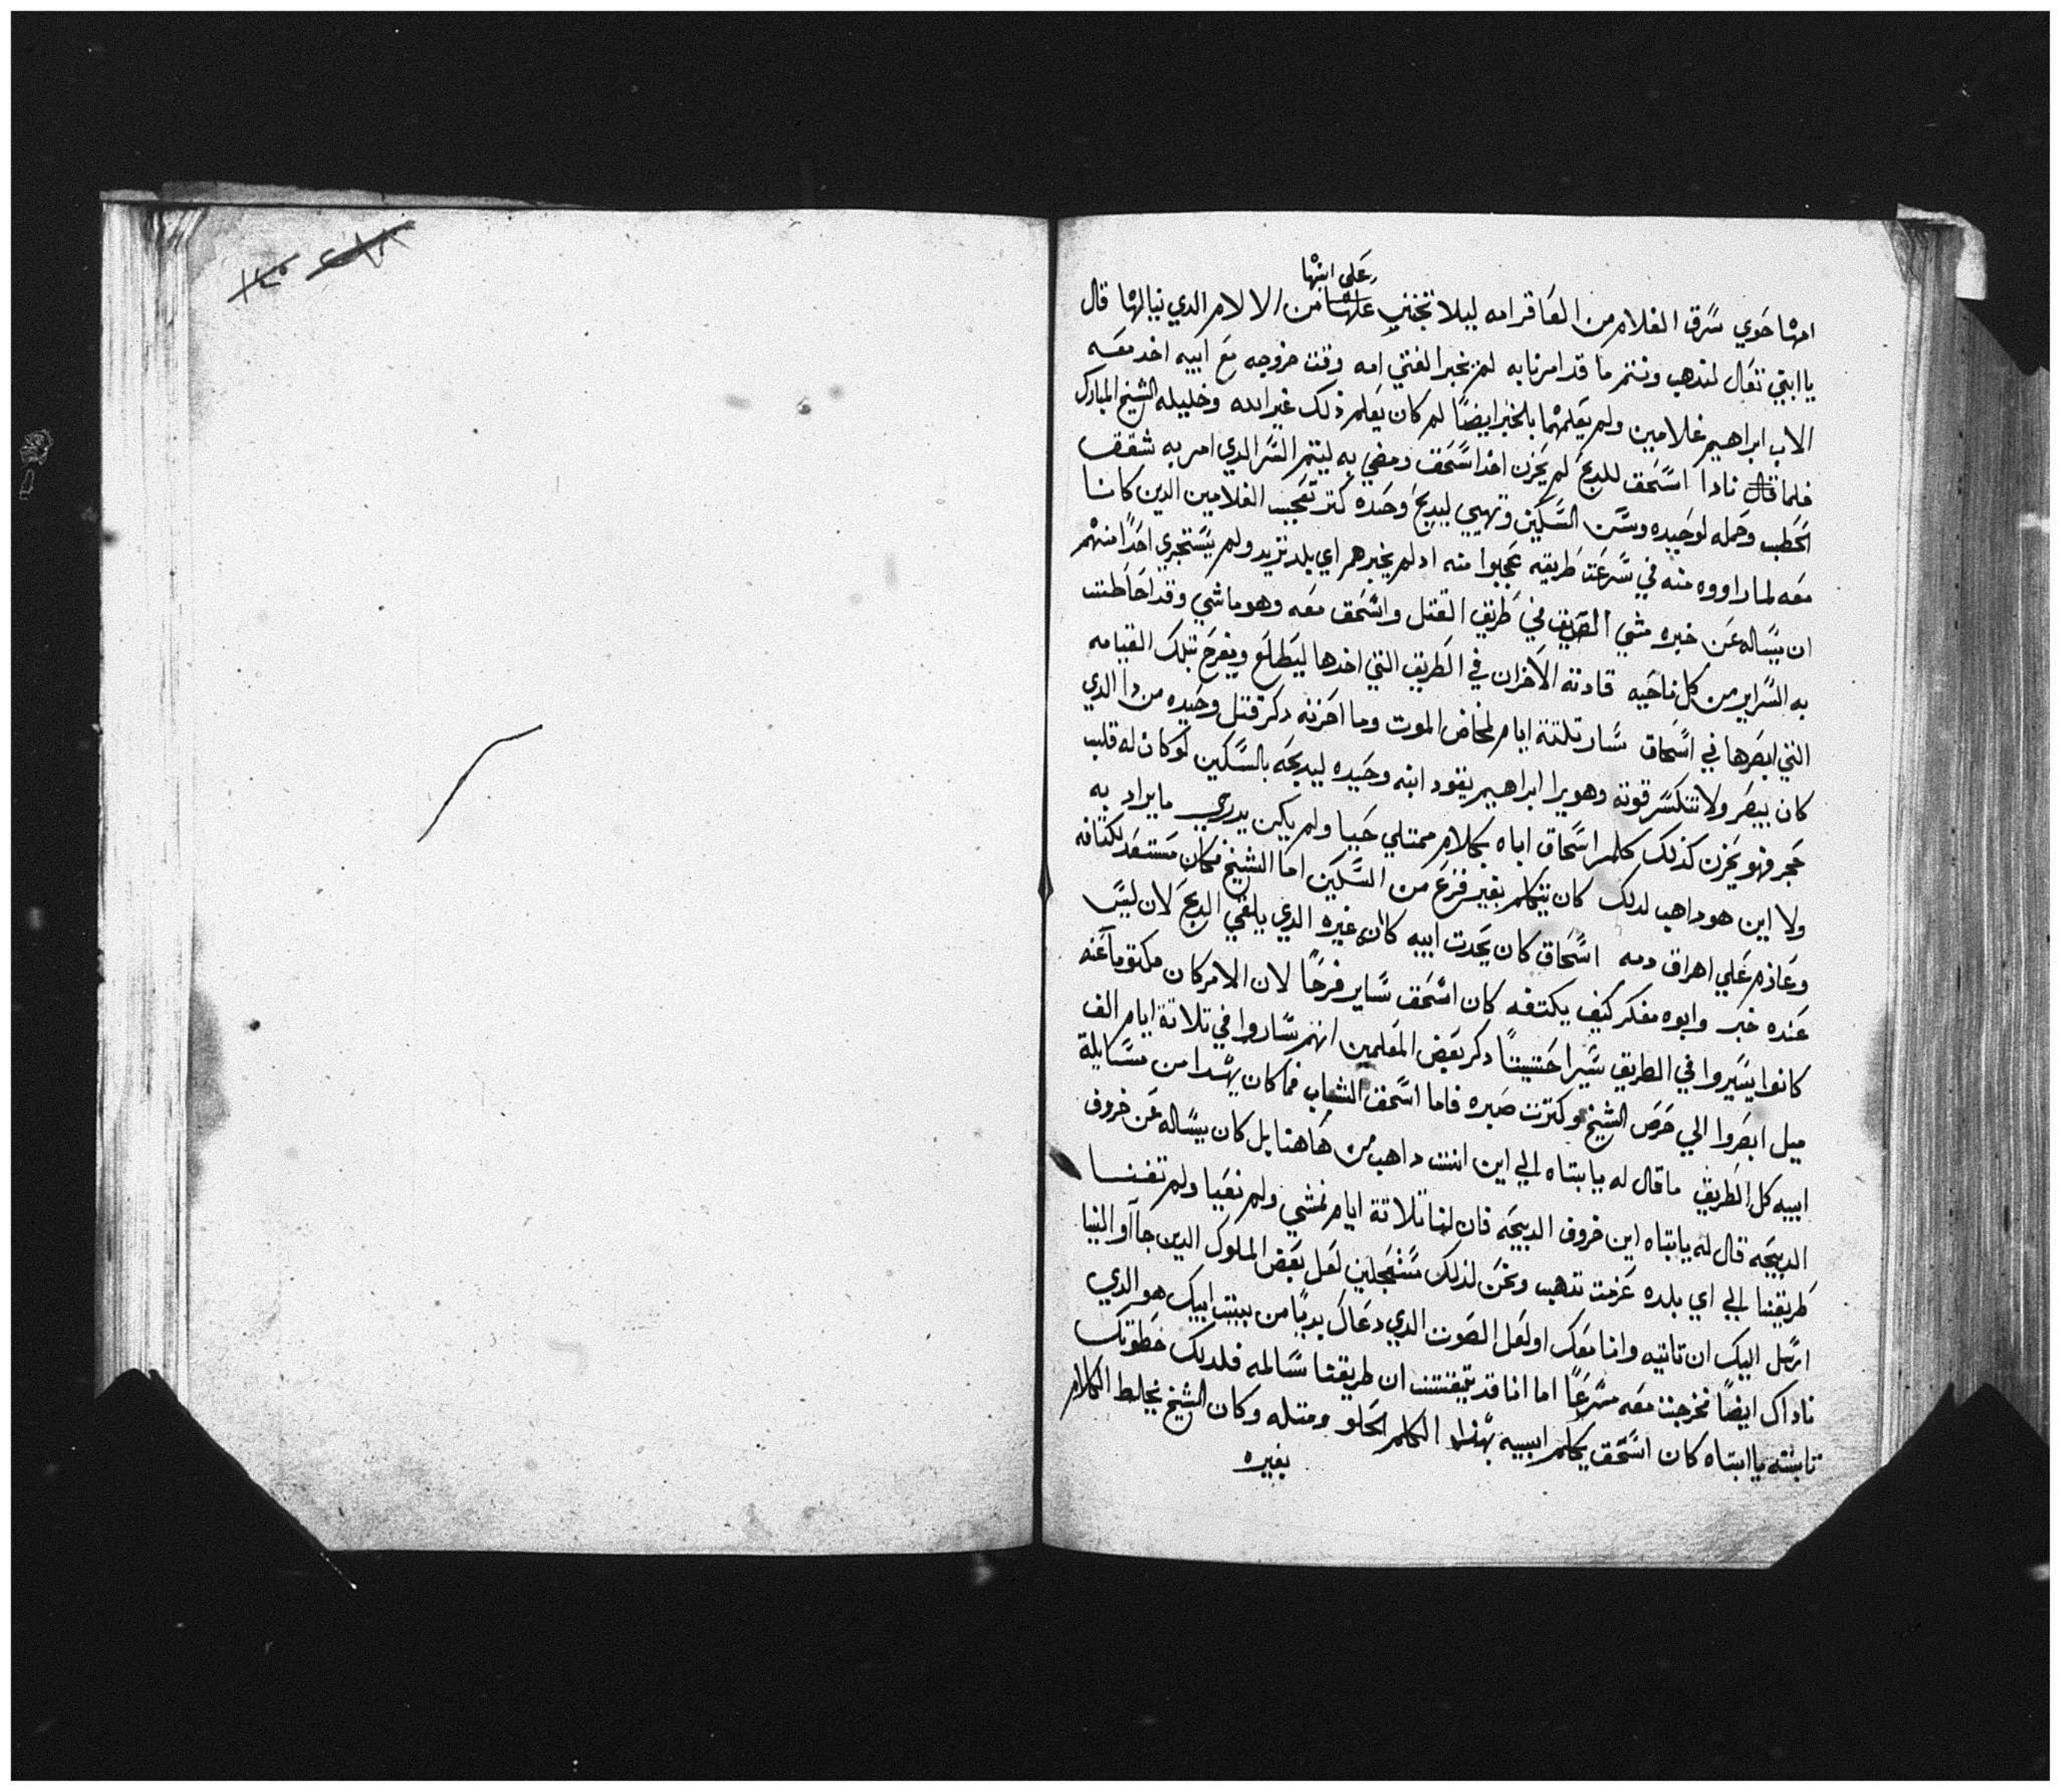 على ابنها
امها حوي سرق الغلام من العاقر امه ليلا تجنني عليها من الالام الدي نيالها قال
يا ابتي تعال لندهب ونتم ما قد امرنا به لم يخبر الفتي امه وقت خروجه مع ابيه اخد معه
الاب ابراهيم غلامين ولم يعلمهما بالخبر ايضًا لم كان يعلم ذلك غير الله وخليله الشيخ المبارك
فلما قال نادا اسحق للدبح لم يحزن اخد اسحق ومضي به ليتم السر الدي امر به شقق
الحطب وحمله لوحيده وسن السكين وتهيي ليدبح وحده كتر تعجب الغلامين الدين كانا
معه لما راووه منه في سرعت طريقه عجبوا منه اد لم يخبرهم اي بلد تريد ولم يستجري احدًا منهم
ان يساله عن خبره مشي الصديق في طريق القتل واسحق معه وهو ماشي وقد احاطت
به السراير من كل ناحيه قادته الاحزان في الطريق التي اخدها ليطلع ويفرح بتلك القيامه
التي ابصرها في اسحاق سار تلتة ايام لمخاض الموت وما احزنه دكر قتل وحيده من دا الدي
كان يبصر ولا تنكسر قوته وهو يرا ابراهيم يقود ابنه وحيده ليدبحه بالسكين لو كان له قلب
حجر فهو يحزن كذلك كلم اسحاق اباه بكلام ممتلي حبا ولم يكن يدري ما يراد به
ولا اين هو داهب لدلك كان يتكلم بغير فزع من السكين اما الشيخ فكان مستعد لكتافه
وعازم علي اهراق دمه اسحاق كان يحدت ابيه كان غيره الدي يلقي الدبح لان ليس
عنده خبر وابوه مفكر كيف يكتفه كان اسحق ساير فرحًا لان الامر كان مكتومًا عنه
كانوا يسيروا في الطريق سيرا حتيتًا دكر بعض المعلمين انهم ساروا في تلاتة ايام الف
ميل ابصروا الي حرص الشيخ وكترت صبره فاما اسحق الشاب فما كان يهدا من مسايلة
ابيه كل الطريق ما قال له يا ابتاه الي اين انت داهب من هاهنا بل كان يساله عن خروف
الدبيحه قال له يا ابتاه اين خروف الدبيحه فان لنا تلاتة ايام نمشي ولم نعيا ولم تفنا
طريقنا الي اي بلده عزمت تدهب ونحن لذلك مستعجلين لعل بعض الملوك الدين جآاو الينا
ارسل اليك ان تاتيه وانا معك او لعل الصوت الدي دعاك بديًا من بيت ابيك هو الدي
ناداك ايضًا فخرجت معه مسرعًا اما انا قد تيقنت ان طريقنا سالمه فلدلك خطوتك
تابته يا ابتاه كان اسحق يكلم ابيه بهذا الكلم الحلو ومتله وكان الشيخ يخلط الكلام
بغيره